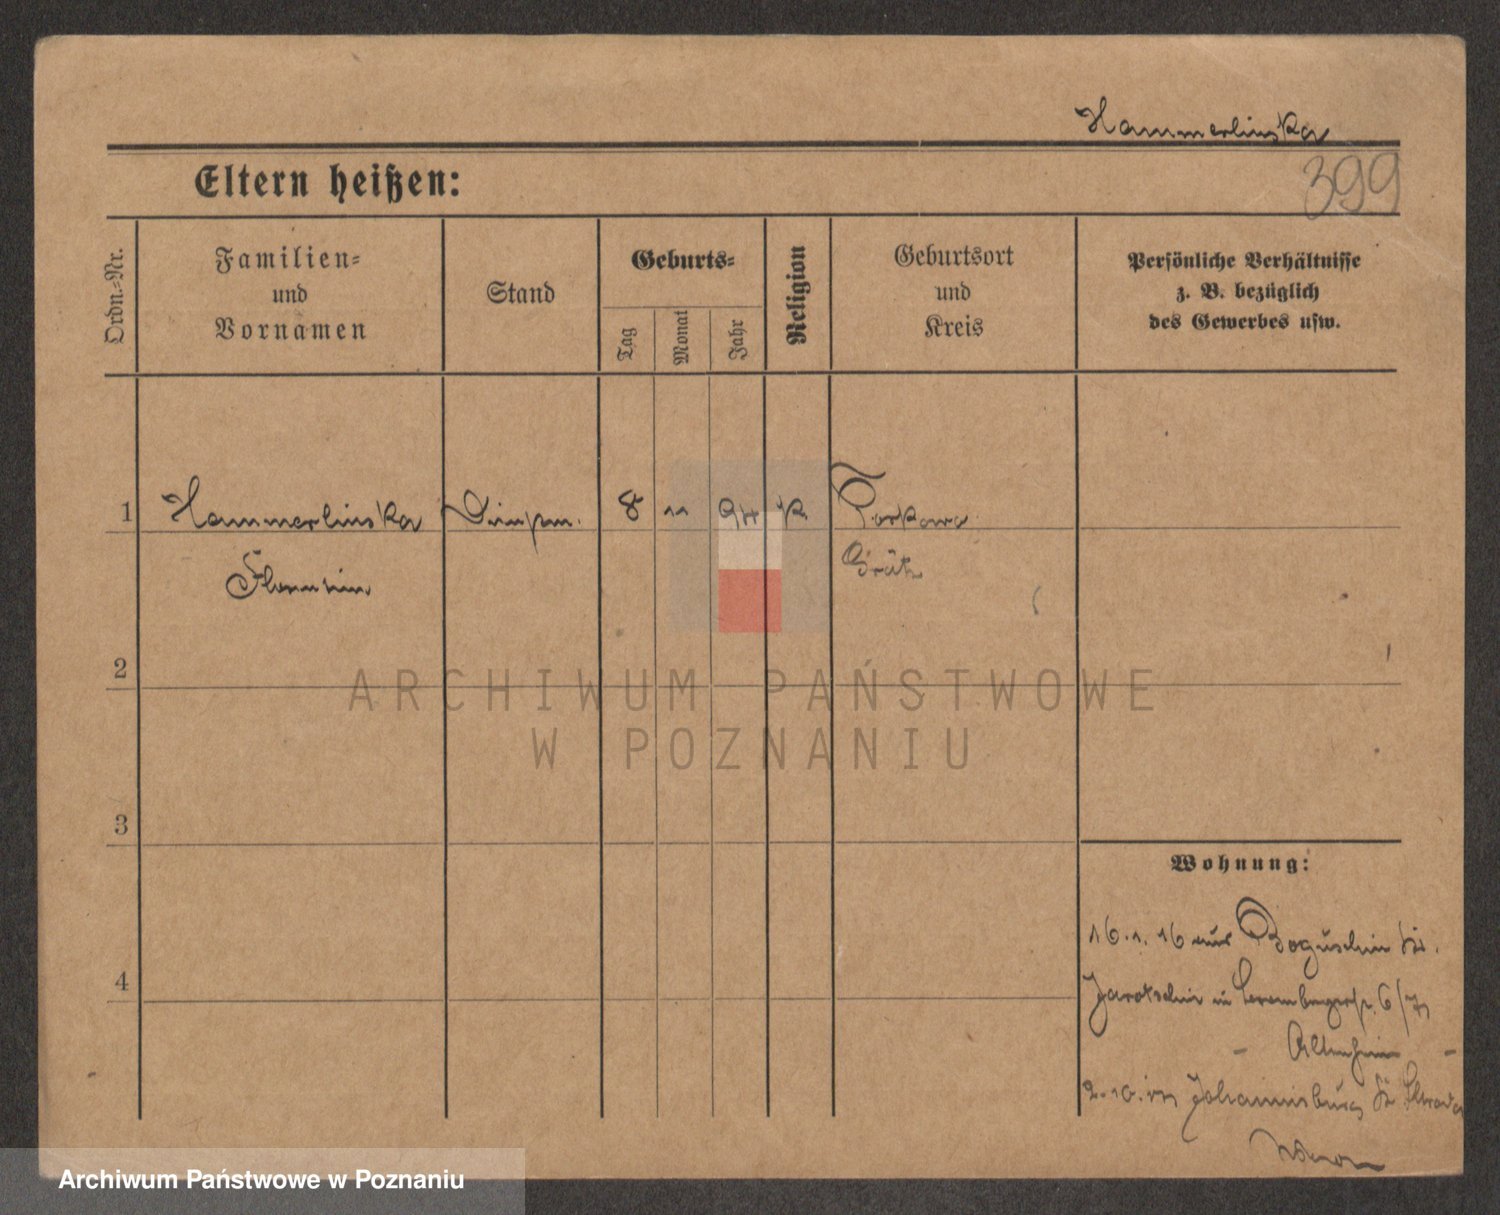 Hammerlinska
399
Eltern heißen:
Ordn.-Nr.
Familien-
und
Vornamen
Stand
Geburts-
Tag
Monat
Jahr
Religion
Geburtsort
und
Kreis
Persönliche Verhältnisse
z. B. bezüglich
des Gewerbes usw.
1 Hammerlinska 8 11 94 K.
Grätz
2
ARCHIWUM PAŃSTWOWE
W POZNANIU
3
Wohnung:
16.1.16 aus Boguschin Kr.
Jarotschin in 6/7
4
Johannisburg Kr.
Archiwum Państwowe w Poznaniu